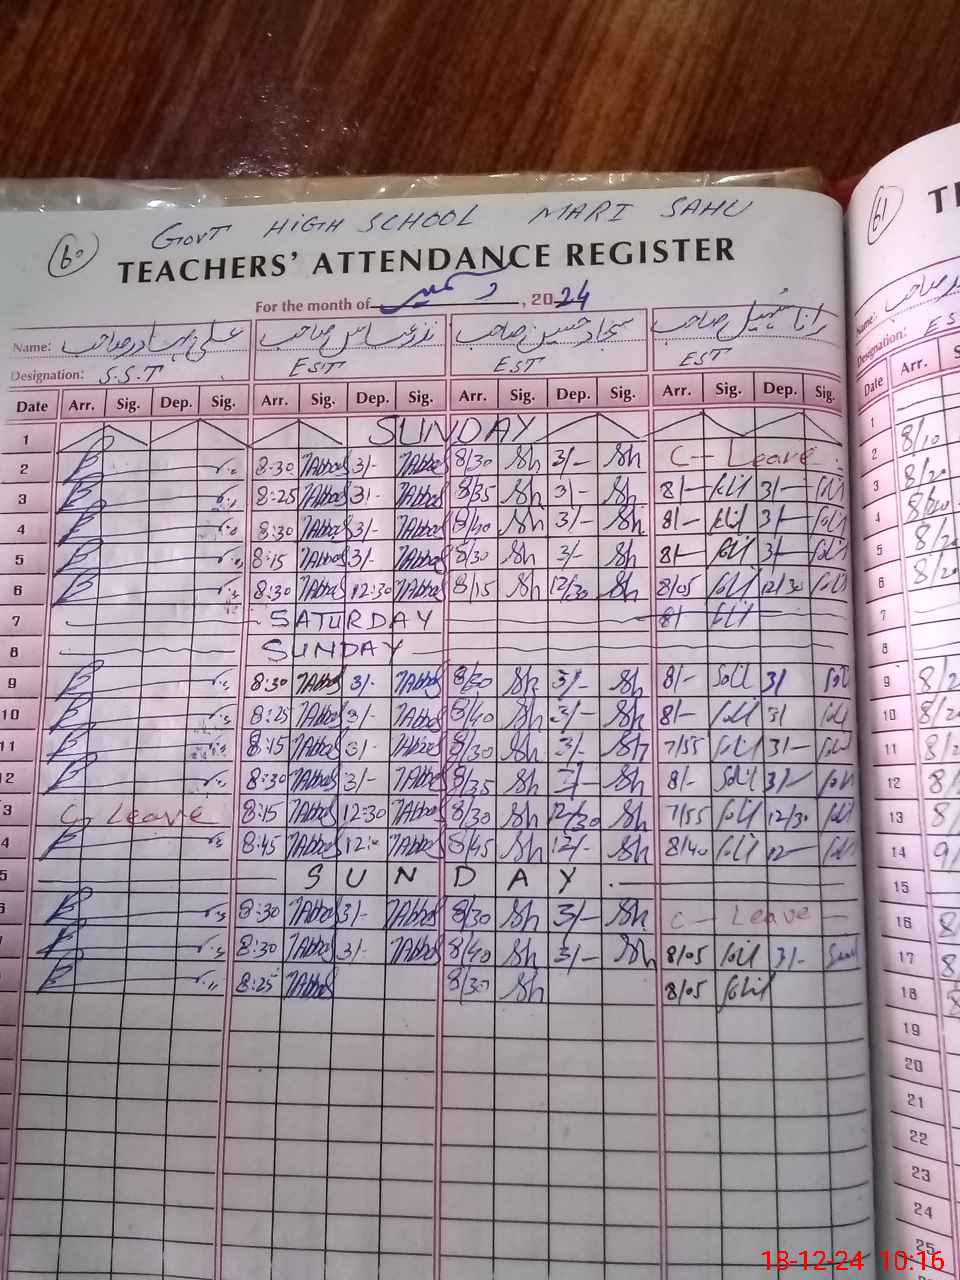 60
GOVT HIGH SCHOOL MARI SAHU
TEACHERS' ATTENDANCE REGISTER
For the month of دسمبر, 2024
Name: علی بہادر صاحب نذر عباس صاحب سجاد حسین صاحب رانا صاحب
Designation: S.S.T EST EST EST
Date Arr. Sig. Dep. Sig. Arr. Sig. Dep. Sig. Arr. Sig. Dep. Sig. Arr. Sig. Dep. Sig.
1 SUNDAY
2 8:30 NAbbas 3/- NAbbas 8/30 Sh 3/- Sh C- Leave
3 8:25 NAbbas 3/- NAbbas 8/35 Sh 3/- Sh 8/- 3/-
4 8:30 NAbbas 3/- NAbbas 8/40 Sh 3/- Sh 8/- 3/-
5 8:15 NAbbas 3/- NAbbas 8/30 Sh 3/- Sh 8/- 3/-
6 8:30 NAbbas 12:30 NAbbas 8/15 Sh 12/30 Sh 8/05 12/30
7 SATURDAY 8/-
8 SUNDAY
9 8:30 NAbbas 3/- NAbbas 8/30 Sh 3/- Sh 8/- 3/
10 8:25 NAbbas 3/- NAbbas 8/40 Sh 3/- Sh 8/- 3/
11 8:15 NAbbas 3/- NAbbas 8/30 Sh 3/- Sh 7/55 3/-
12 8:30 NAbbas 3/- NAbbas 8/35 Sh 3/- Sh 8/- 3/-
3 C- Leave 8:15 NAbbas 12:30 NAbbas 8/30 Sh 12/30 Sh 7/55 12/30
4 8:45 NAbbas NAbbas 8/45 Sh 12/- Sh 8/40 12
5 SUNDAY
6 8:30 NAbbas 3/- NAbbas 8/30 Sh 3/- Sh C- Leave
8:30 NAbbas 3/- NAbbas 8/40 Sh 3/- Sh 8/05 3/-
8:25 NAbbas 8/30 Sh 8/05
61
Name:
Designation: ES
Date Arr.
1
2 8/10
3 8/20
4
5
6 8/20
7
8
9
10
11
12
13
14
15
16
17
18
19
20
21
22
23
24
25
18-12-24 10:16